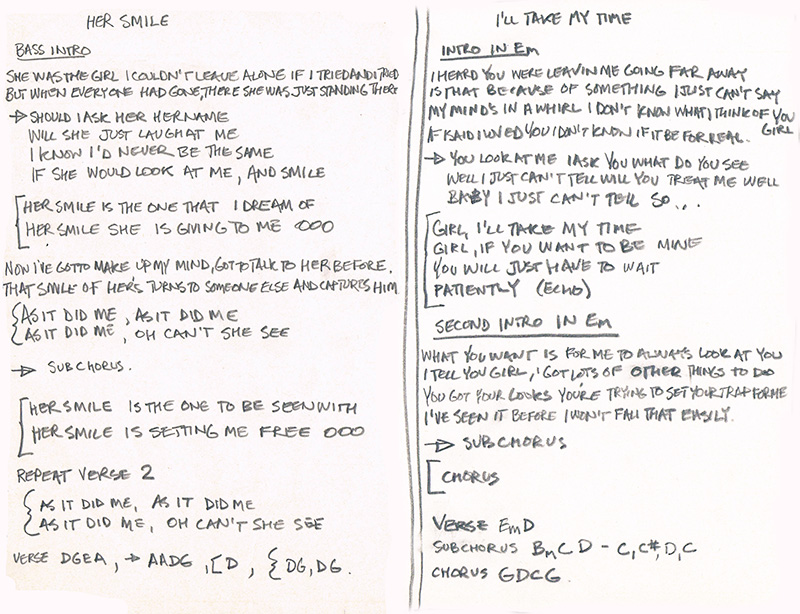 HER SMILE
BASS INTRO
SHE WAS THE GIRL I COULDN'T LEAVE ALONE IF I TRIED AND I TRIED
BUT WHEN EVERYONE HAD GONE, THERE SHE WAS JUST STANDING THERE
→ SHOULD I ASK HER HER NAME
WILL SHE JUST LAUGH AT ME
I KNOW I'D NEVER BE THE SAME
IF SHE WOULD LOOK AT ME, AND SMILE
[HER SMILE IS THE ONE THAT I DREAM OF
HER SMILE SHE IS GIVING TO ME OOO
NOW I'VE GOT TO MAKE UP MY MIND, GOT TO TALK TO HER BEFORE.
THAT SMILE OF HER'S TURNS TO SOMEONE ELSE AND CAPTURES HIM
{AS IT DID ME, AS IT DID ME
AS IT DID ME, OH CAN'T SHE SEE
→ SUBCHORUS.
[HER SMILE IS THE ONE TO BE SEEN WITH
HER SMILE IS SETTING ME FREE OOO
REPEAT VERSE 2
{AS IT DID ME, AS IT DID ME
AS IT DID ME, OH CAN'T SHE SEE
VERSE DGEA, → AADG, [D, { DG, DG.
I'LL TAKE MY TIME
INTRO IN Em
I HEARD YOU WERE LEAVIN ME GOING FAR AWAY
IS THAT BECAUSE OF SOMETHING I JUST CAN'T SAY
MY MIND'S IN A WHIRL I DON'T KNOW WHAT I THINK OF YOU GIRL
IF I SAID I LOVED YOU I DON'T KNOW IF IT BE FOR REAL.
→ YOU LOOK AT ME I ASK YOU WHAT DO YOU SEE
WELL I JUST CAN'T TELL WILL YOU TREAT ME WELL
BABY I JUST CAN'T TELL SO...
[GIRL, I'LL TAKE MY TIME
GIRL, IF YOU WANT TO BE MINE
YOU WILL JUST HAVE TO WAIT
PATIENTLY (ECHO)
SECOND INTRO IN Em
WHAT YOU WANT IS FOR ME TO ALWAYS LOOK AT YOU
I TELL YOU GIRL, I GOT LOTS OF OTHER THINGS TO DO
YOU GOT YOUR LOOKS YOU'RE TRYING TO SET YOUR TRAP FOR ME
I'VE SEEN IT BEFORE I WON'T FALL THAT EASILY.
→ SUBCHORUS
[CHORUS
VERSE EmD
SUBCHORUS BmCD - C, C#, D, C
CHORUS GDCG